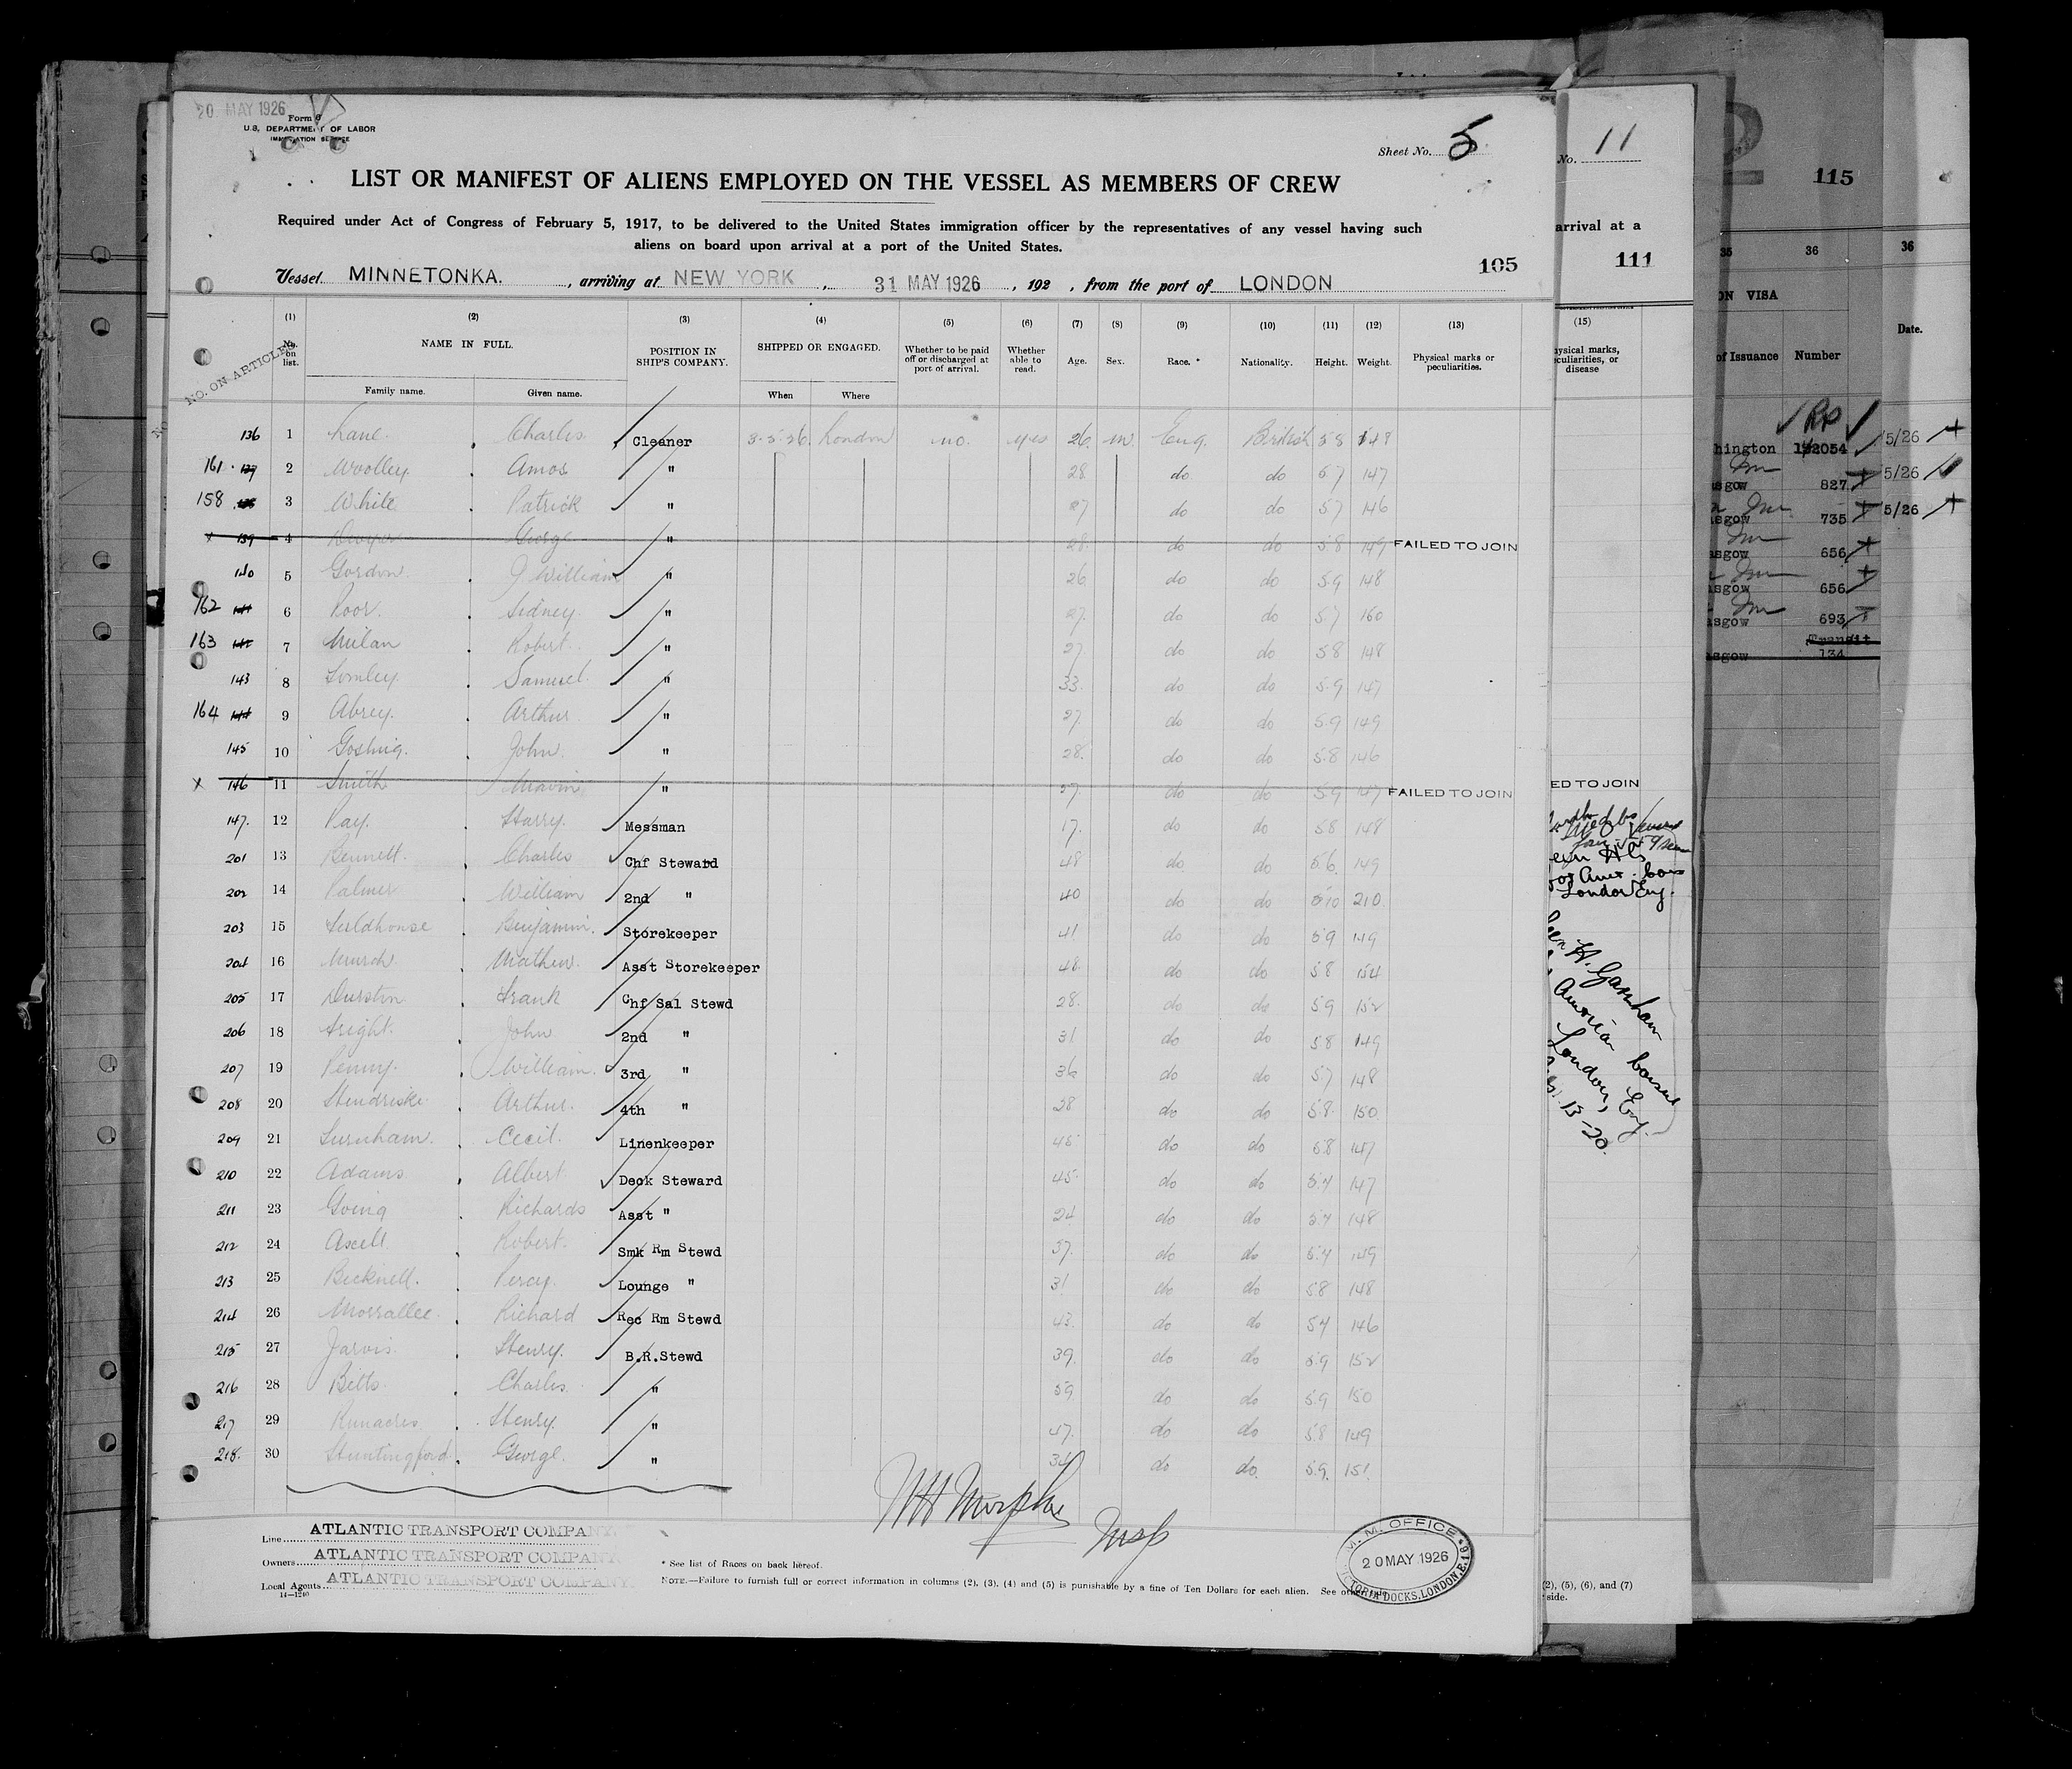 20 MAY 1926
Form
U.S. DEPARTMENT OF LABOR
IMMIGRATION SERVICE
Sheet No. 5
LIST OR MANIFEST OF ALIENS EMPLOYED ON THE VESSEL AS MEMBERS OF CREW
Required under Act of Congress of February 5, 1917, to be delivered to the United States immigration officer by the representatives of any vessel having such
aliens on board upon arrival at a port of the United States.
105
Vessel MINNETONKA. , arriving at NEW YORK , 31 MAY 1926 , 192 , from the port of LONDON
NO. ON ARTICLES
(1) (2) (3) (4) (5) (6) (7) (8) (9) (10) (11) (12) (13)
No. on list. NAME IN FULL. POSITION IN SHIP'S COMPANY. SHIPPED OR ENGAGED. Whether to be paid off or discharged at port of arrival. Whether able to read. Age. Sex. Race. * Nationality. Height. Weight. Physical marks or peculiarities.
Family name. Given name. When Where
136 1 Lane. Charles Cleaner 3-5-26 London no. yes 26 m Eng. British 5 8 148
161 137 2 Woolley. Amos " 28 do do 5 7 147
158 3 White Patrick " 27 do do 5 7 146
x 139 4 George " 28 do do 5 8 149 FAILED TO JOIN
140 5 Gordon. J William " 26 do do 5 9 148
162 141 6 Poor. Sidney. " 27. do do 5.7 160
163 142 7 Milan Robert. " 27 do do 5 8 148
143 8 Lomley Samuel. " 33. do do 5.9 147
164 144 9 Abrey. Arthur. " 27. do do 5.9 149
145 10 Gosling. John. " 28. do do 5.8 146
x 146 11 Smith " 27. do do 5.9 147 FAILED TO JOIN
147. 12 Ray. Harry. Messman 17. do do 5 8 148
201 13 Bennett. Charles Chf Steward 48 do do 5 6. 149
202 14 Palmer William 2nd " 40 do do 5 10 210
203 15 Fieldhouse Benjamin. Storekeeper 41 do do 5 9 149
204 16 Mathew. Asst Storekeeper 48. do do 5 8 154
205 17 Durston Frank Chf Sal Stewd 28. do do 5 9 152
206 18 John 2nd " 31 do do 5 8 149
207 19 Penny. William. 3rd " 36 do do 5.7 148
208 20 Arthur. 4th " 28 do do 5.8. 150
209 21 Cecil. Linenkeeper 45 do do 5.8 147
210 22 Adams Albert Deck Steward 45 do do 5.7 147
211 23 Going Richards Asst " 24 do do 5.7 148
212 24 Ascell Robert. Smk Rm Stewd 37. do do 5.7 149
213 25 Bicknell. Percy. Lounge " 31 do do 5.8 148
214 26 Morrallee. Richard Rec Rm Stewd 43. do do 5 7 146
215 27 Jarvis. Henry. B.R.Stewd 39. do do 5.9 152
216 28 Betts Charles. " 59 do do 5.9 150
217 29 Runacres Henry. " 47. do do 5.8 149
218. 30 Huntingford. George. " 34 do do. 5.9. 151
W H Murphy
Insp
Line ATLANTIC TRANSPORT COMPANY
Owners ATLANTIC TRANSPORT COMPANY
Local Agents ATLANTIC TRANSPORT COMPANY
14—1240
* See list of Races on back hereof.
NOTE.—Failure to furnish full or correct information in columns (2), (3), (4) and (5) is punishable by a fine of Ten Dollars for each alien. See other side.
M.M. OFFICE
20 MAY 1926
VICTORIA DOCKS, LONDON, E.16
No. 11
arrival at a
111
(15)
ysical marks,
culiarities, or
disease
ED TO JOIN
London Eng.
H. Garnham
American
London, Eng.
13-20.
(2), (5), (6), and (7)
side.
115
35 36
ON VISA
of Issuance Number
hington 192054
asgow 827
asgow 735
asgow 656
asgow 656
asgow 693
Transit
asgow 134
36
Date.
5/26
5/26
5/26